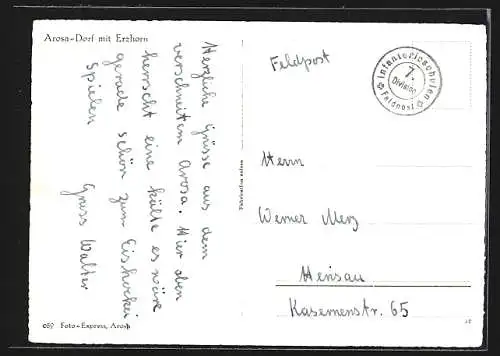 Arosa-Dorf mit Erzhorn
Herzliche Grüsse aus dem
verschneitem Arosa. Hier oben
herrscht eine kälte es wäre
gerade schön zum Eishockei
spielen
Gruss Walter
Feldpost
Infanterieschulen
7.
Division
Feldpost
Herrn
Werner Merz
Herisau
Kasernenstr. 65
Foto-Express, Arosa